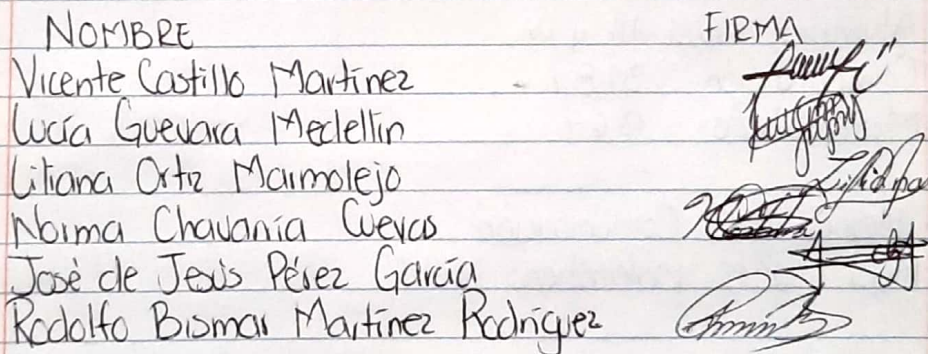 NOMBRE FIRMA
Vicente Castillo Martínez
Lucía Guevara Medellín
Liliana Ortiz Marmolejo
Norma Chavanía Cuevas
José de Jesús Pérez García
Rodolfo Bismar Martínez Rodríguez